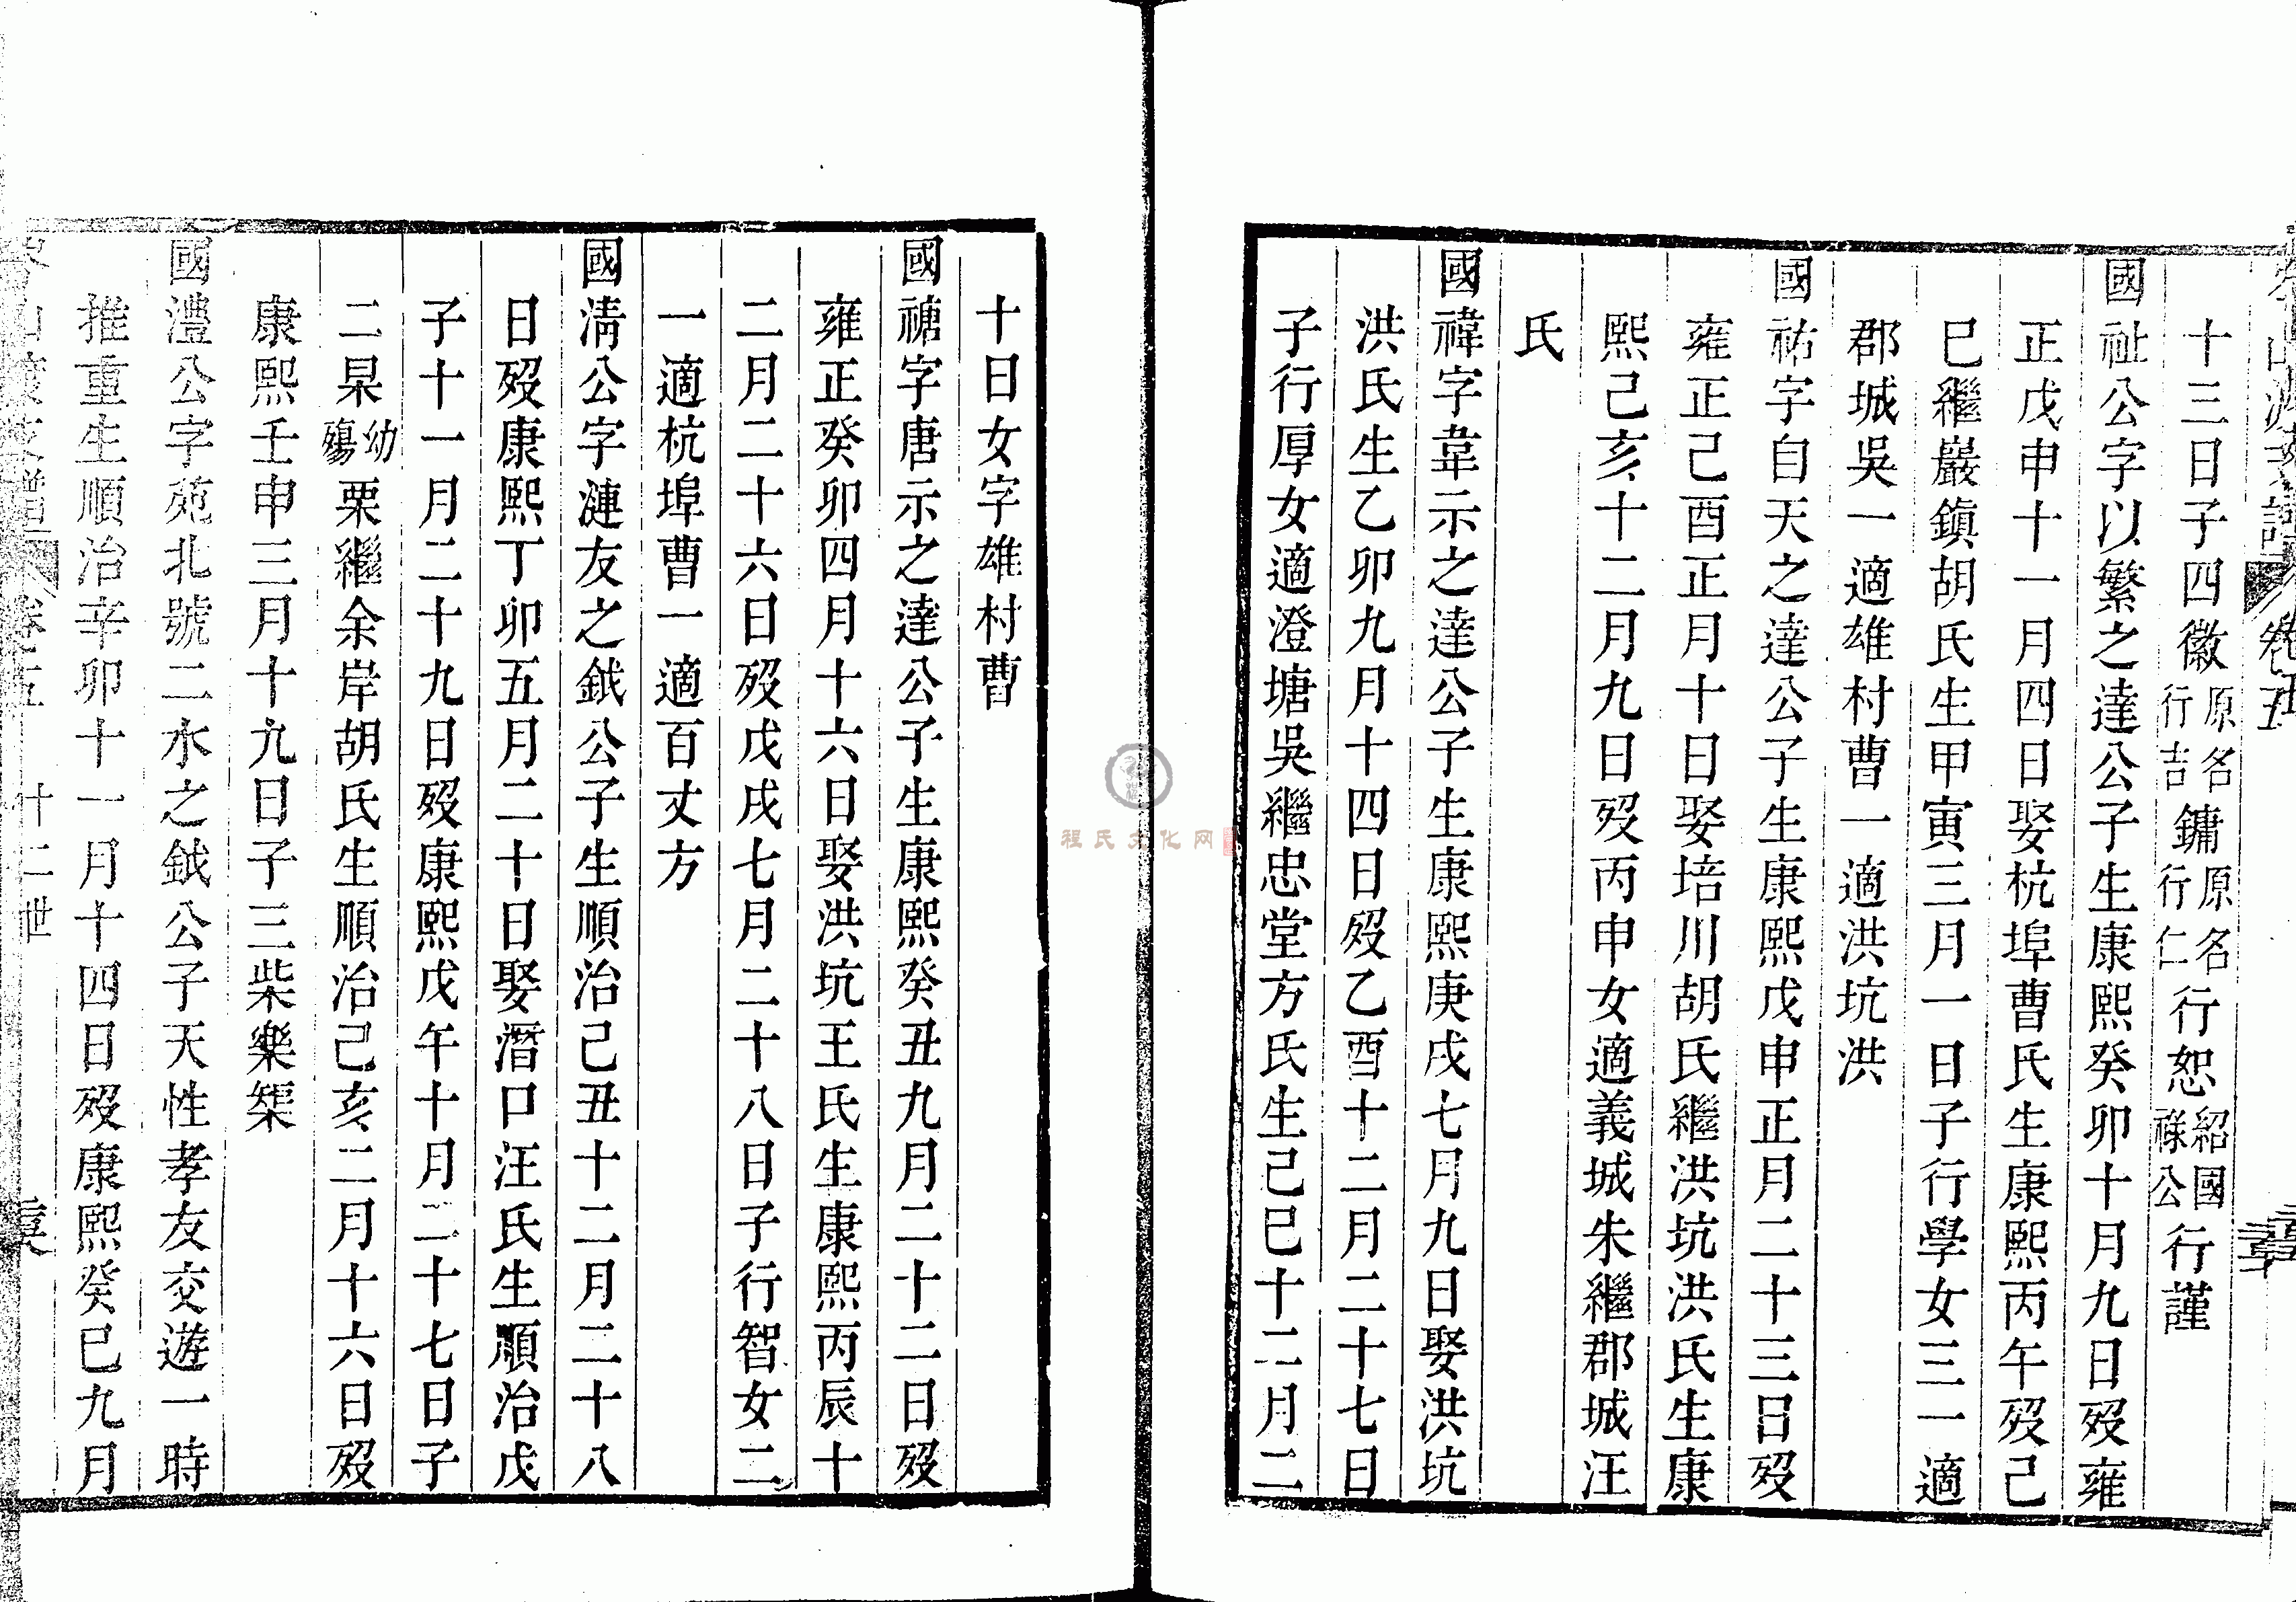 卷五
十三日子四徽原名行吉鏞原名行仁行恕紹國祿公行謹
國祉公字以繁之達公子生康熙癸卯十月九日歿雍
正戊申十一月四日娶杭埠曹氏生康熙丙午歿己
巳繼巖鎮胡氏生甲寅三月一日子行學女三一適
郡城吳一適雄村曹一適洪坑洪
國祐字自天之達公子生康熙戊申正月二十三日歿
雍正己酉正月十日娶培川胡氏繼洪坑洪氏生康
熙己亥十二月九日歿丙申女適義城朱繼郡城汪
氏
國禕字韋示之達公子生康熙庚戌七月九日娶洪坑
洪氏生乙卯九月十四日歿乙酉十二月二十七日
子行厚女適澄塘吳繼忠堂方氏生己巳十二月二
十日女字雄村曹
國禟字唐示之達公子生康熙癸丑九月二十二日歿
雍正癸卯四月十六日娶洪坑王氏生康熙丙辰十
二月二十六日歿戊戌七月二十八日子行智女二
一適杭埠曹一適百丈方
國淸公字漣友之鉞公子生順治己丑十二月二十八
日歿康熙丁卯五月二十日娶潛口汪氏生順治戊
子十一月二十九日歿康熙戊午十月二十七日子
二杲幼殤栗繼余岸胡氏生順治己亥二月十六日歿
康熙壬申三月十九日子三柴樂榘
國灃公字苑北號二水之鉞公子天性孝友交遊一時
推重生順治辛卯十一月十四日歿康熙癸巳九月
卷五 十二世
程氏文化网